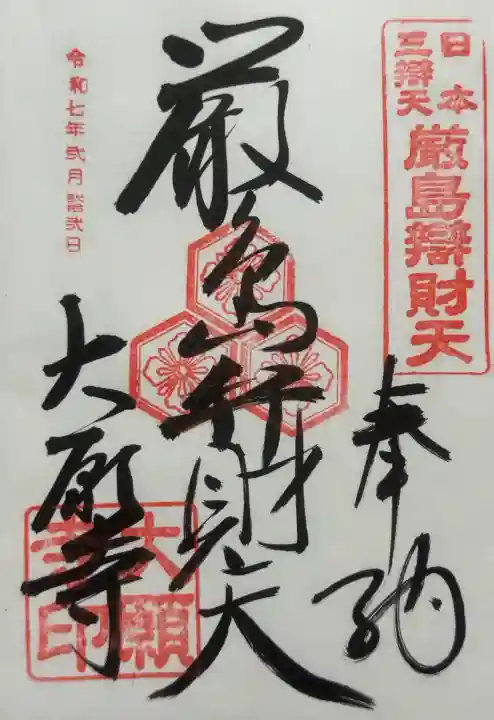 日本
三辯天
厳島辯財天
奉納
厳島弁財天
大願寺
大願
寺印
令和七年弐月拾弐日